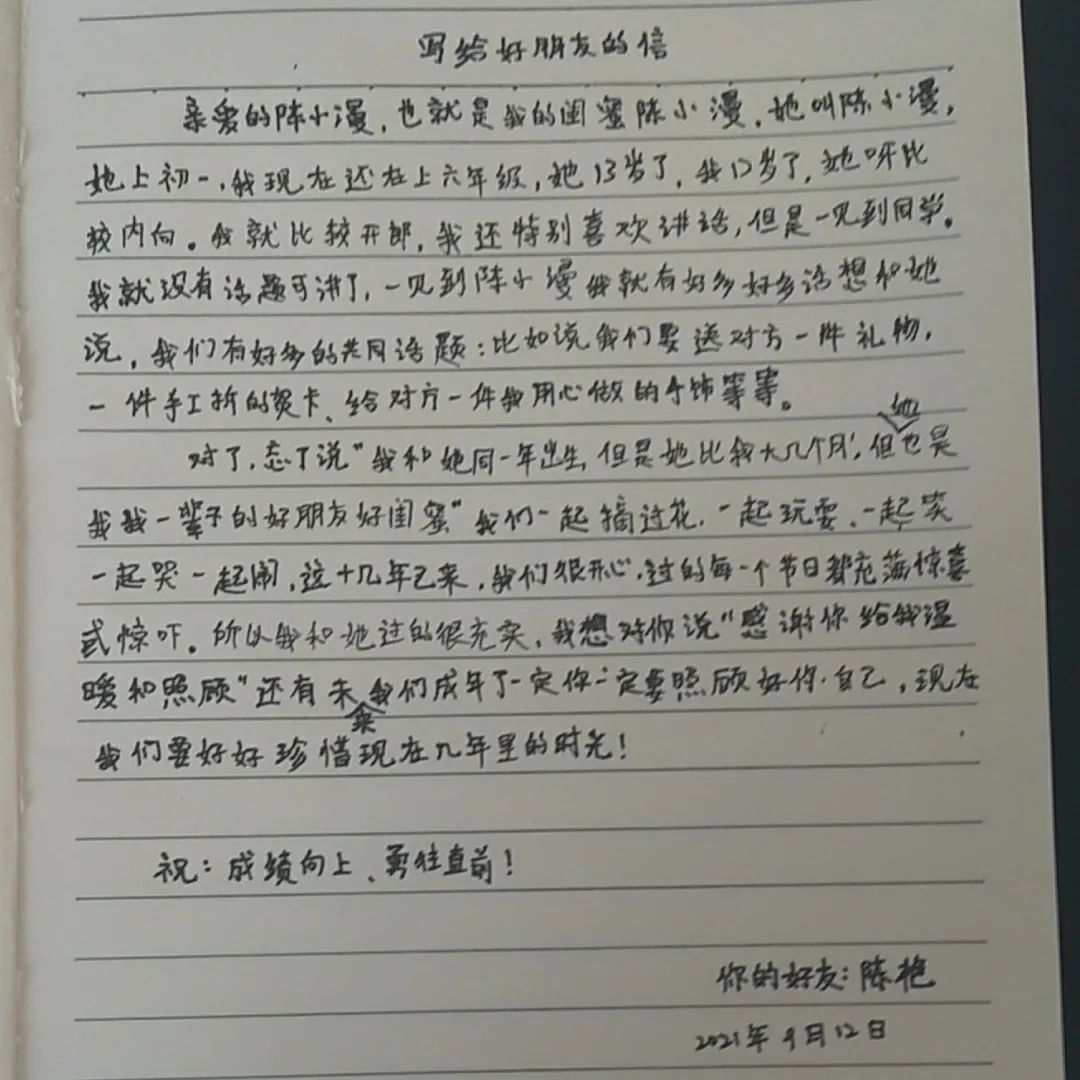 写给好朋友的信
亲爱的陈小漫,也就是我的闺蜜陈小漫,她叫陈小漫,
她上初一,我现在还在上六年级,她13岁了,我12岁了,她呀比
较内向。我就比较开郎,我还特别喜欢讲话,但是一见到同学。
我就没有话题可讲了,一见到陈小漫我就有好多好多话想和她
说,我们有好多的共同话题:比如说我们要送对方一件礼物,
一件手工折的贺卡、给对方一件我用心做的手饰等等。
对了,忘了说“我和她同一年出生,但是她比我大几个月,但她也是
我我一辈子的好朋友好闺蜜“我们一起摘过花、一起玩耍、一起笑
一起哭一起闹,这十几年己来,我们很开心,过的每一个节日都充满惊喜
或惊吓。所以我和她过的很充实,我想对你说“感谢你给我温
暖和照顾“还有未来我们成年了一定你一定要照顾好你自己,现在
我们要好好珍惜现在几年里的时光!
祝:成绩向上、勇往直前!
你的好友:陈艳
2021年9月12日